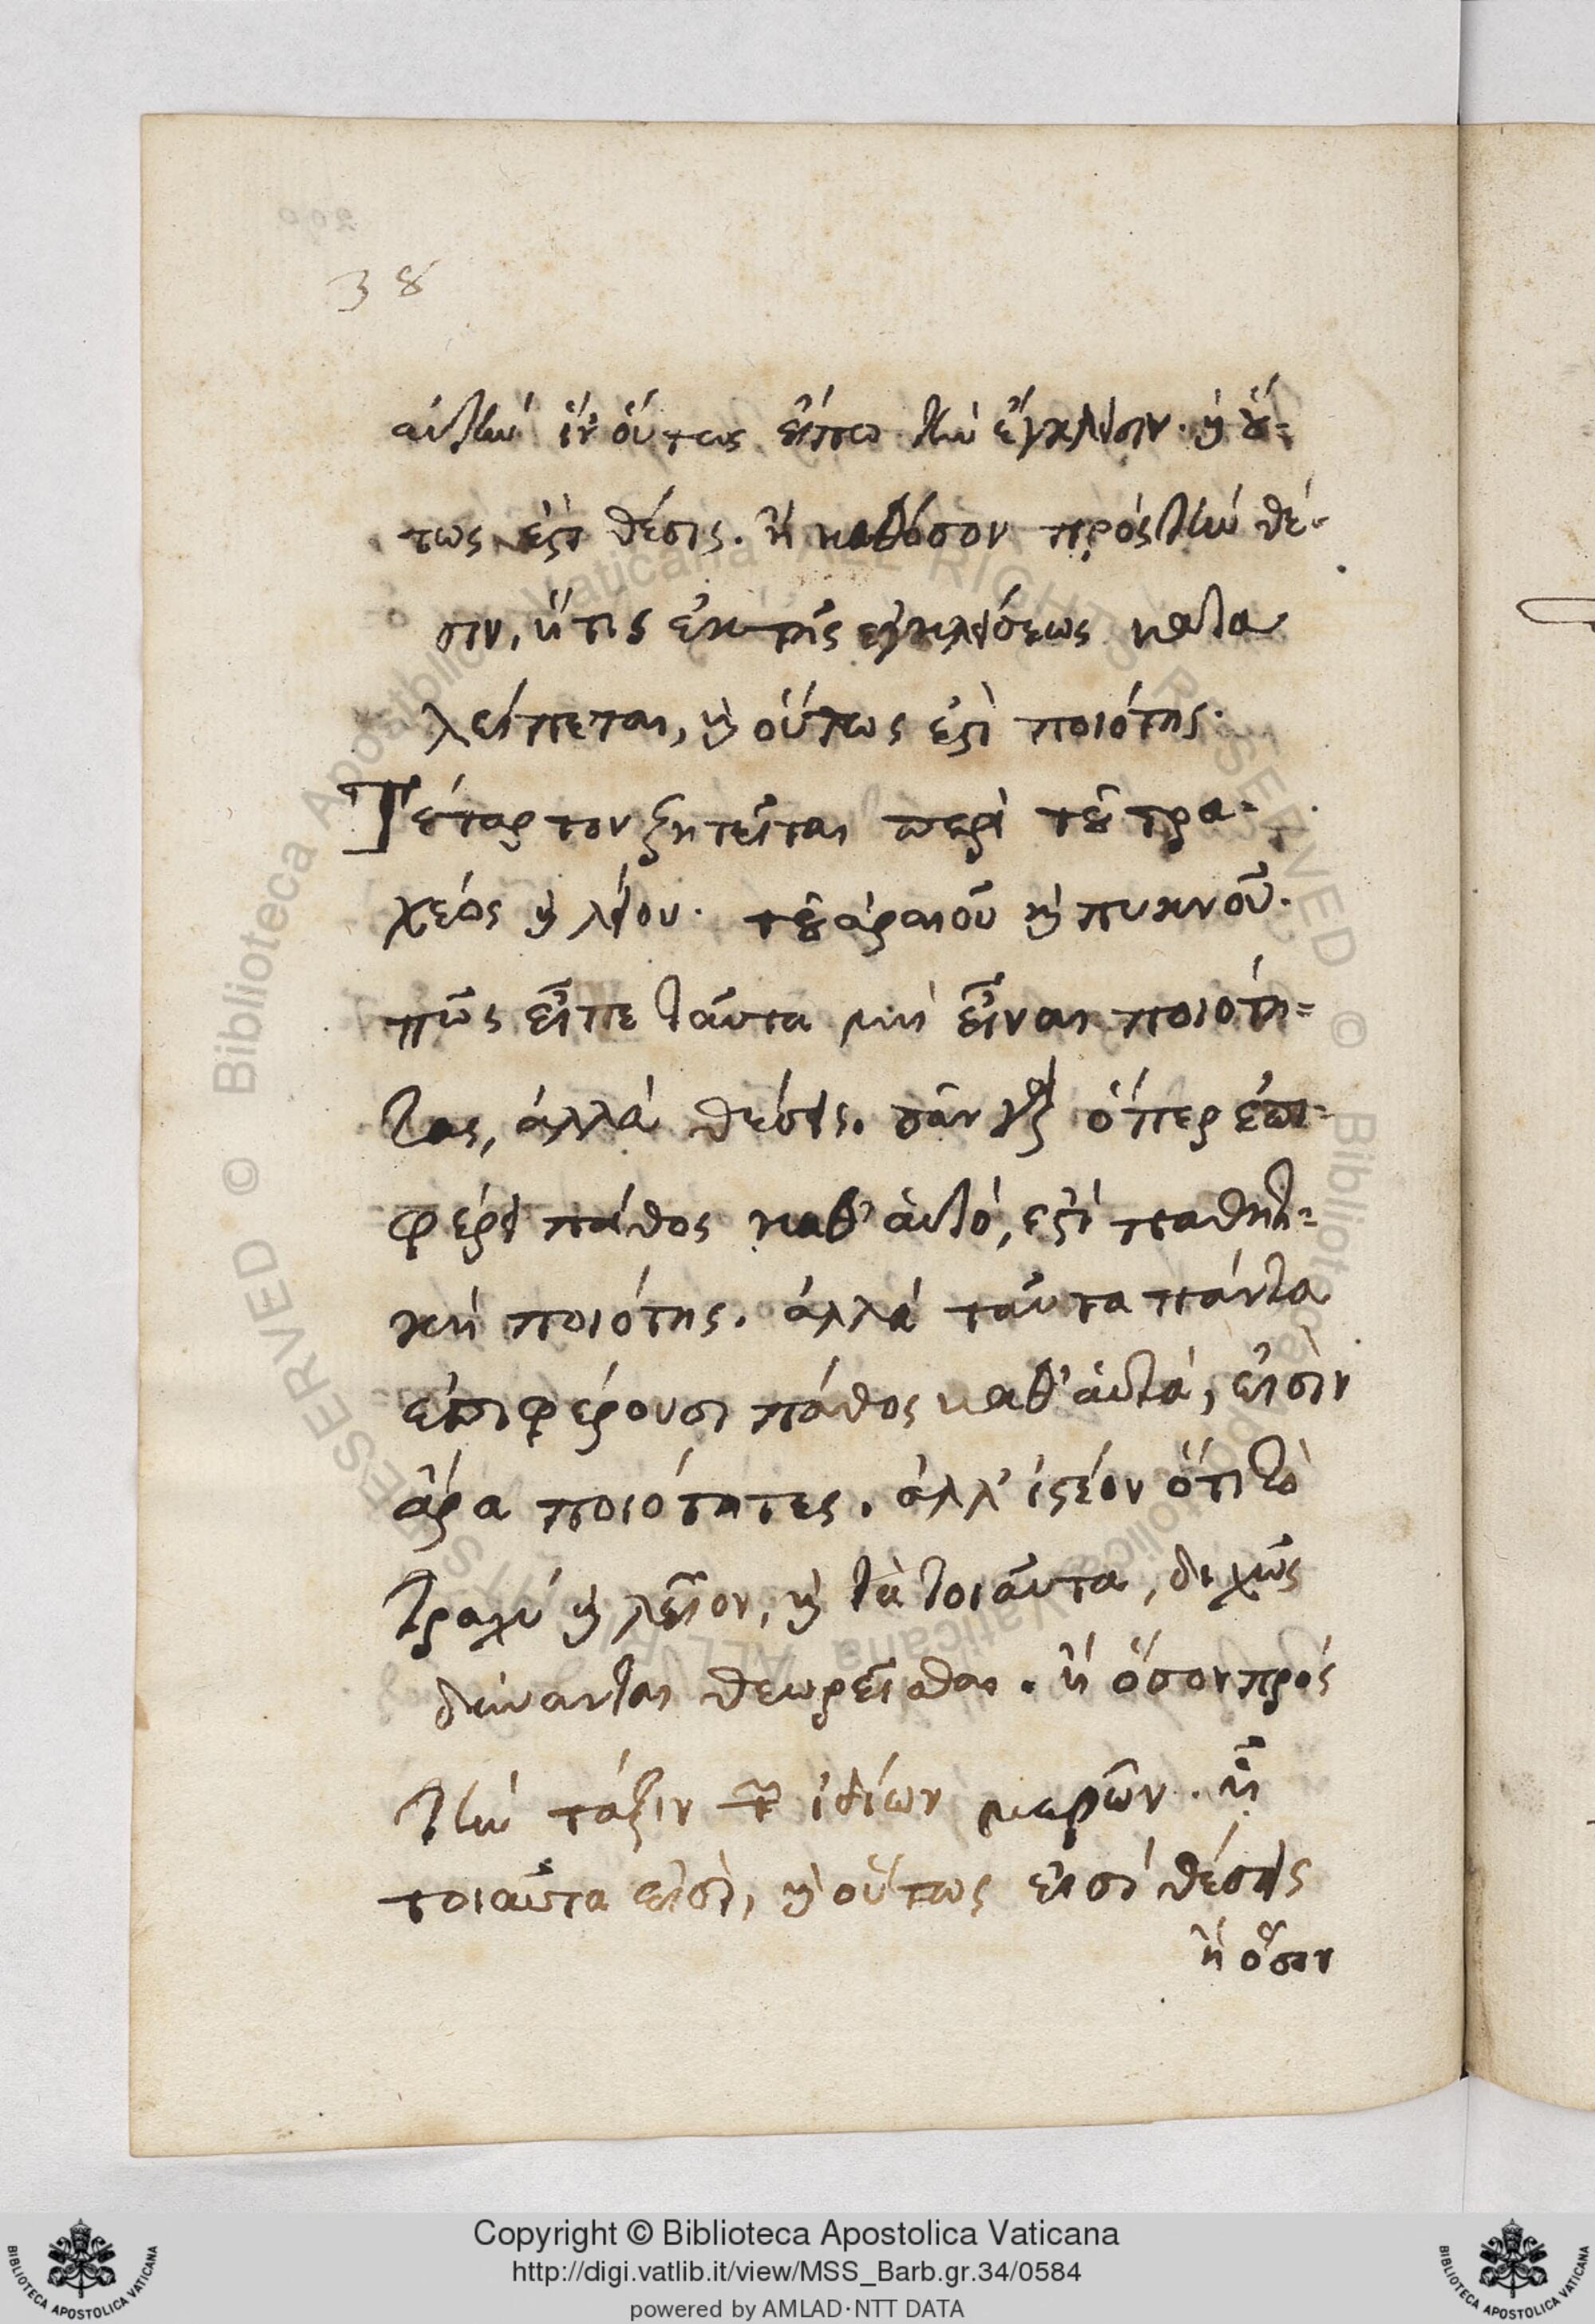 38
αὐτὴν ἵν' οὕτως εἴπω τὴν ἔγκλησιν. καὶ οὕ-
τως ἐστὶ θέσις. ἢ καθόσον πρὸς τὴν θέ-
σιν, ἥτις ἐκ τῆς ἐγκλήσεως κατα
λείπεται, καὶ οὕτως ἐστὶ ποιότης.
Τέταρτον ζητεῖται περὶ τοῦ τρα-
χέος καὶ λείου. τοῦ ἀραιοῦ καὶ πυκνοῦ.
πῶς εἶπε ταῦτα μὴ εἶναι ποιότη-
τας, ἀλλὰ θέσεις. πᾶν γὰρ ὅπερ ἐπι-
φέρει πάθος καθ' αὑτό, ἐστὶ παθητι-
κὴ ποιότης. ἀλλὰ ταῦτα πάντα
ἐπιφέρουσι πάθος καθ' αὑτά, εἰσὶν
ἄρα ποιότητες. ἀλλ' ἰστέον ὅτι τὸ
τραχὺ καὶ λεῖον, καὶ τὰ τοιαῦτα, διχῶς
δύνανται θεωρεῖσθαι. ἢ ὅσον πρὸς
τὴν τάξιν τῶν ἰδίων μερῶν. ᾗ
τοιαῦτα εἰσὶ, καὶ οὕτως εἰσὶ θέσεις
ἢ ὅσον
Copyright © Biblioteca Apostolica Vaticana
http://digi.vatlib.it/view/MSS_Barb.gr.34/0584
powered by AMLAD·NTT DATA